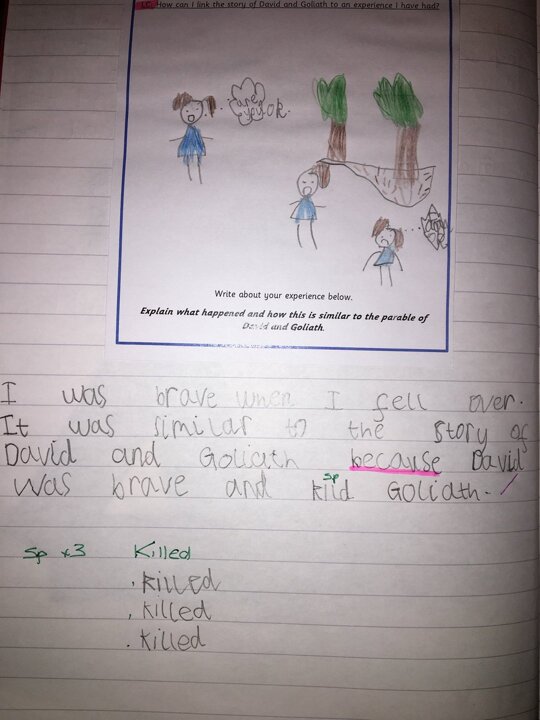 LC: How can I link the story of David and Goliath to an experience I have had?
are you ok.
Write about your experience below.
Explain what happened and how this is similar to the parable of
David and Goliath.
I was brave when I fell over.
It was similar to the story of
David and Goliath because David
sp
was brave and kild Goliath.
Sp x3 Killed
. killed
. killed
. killed